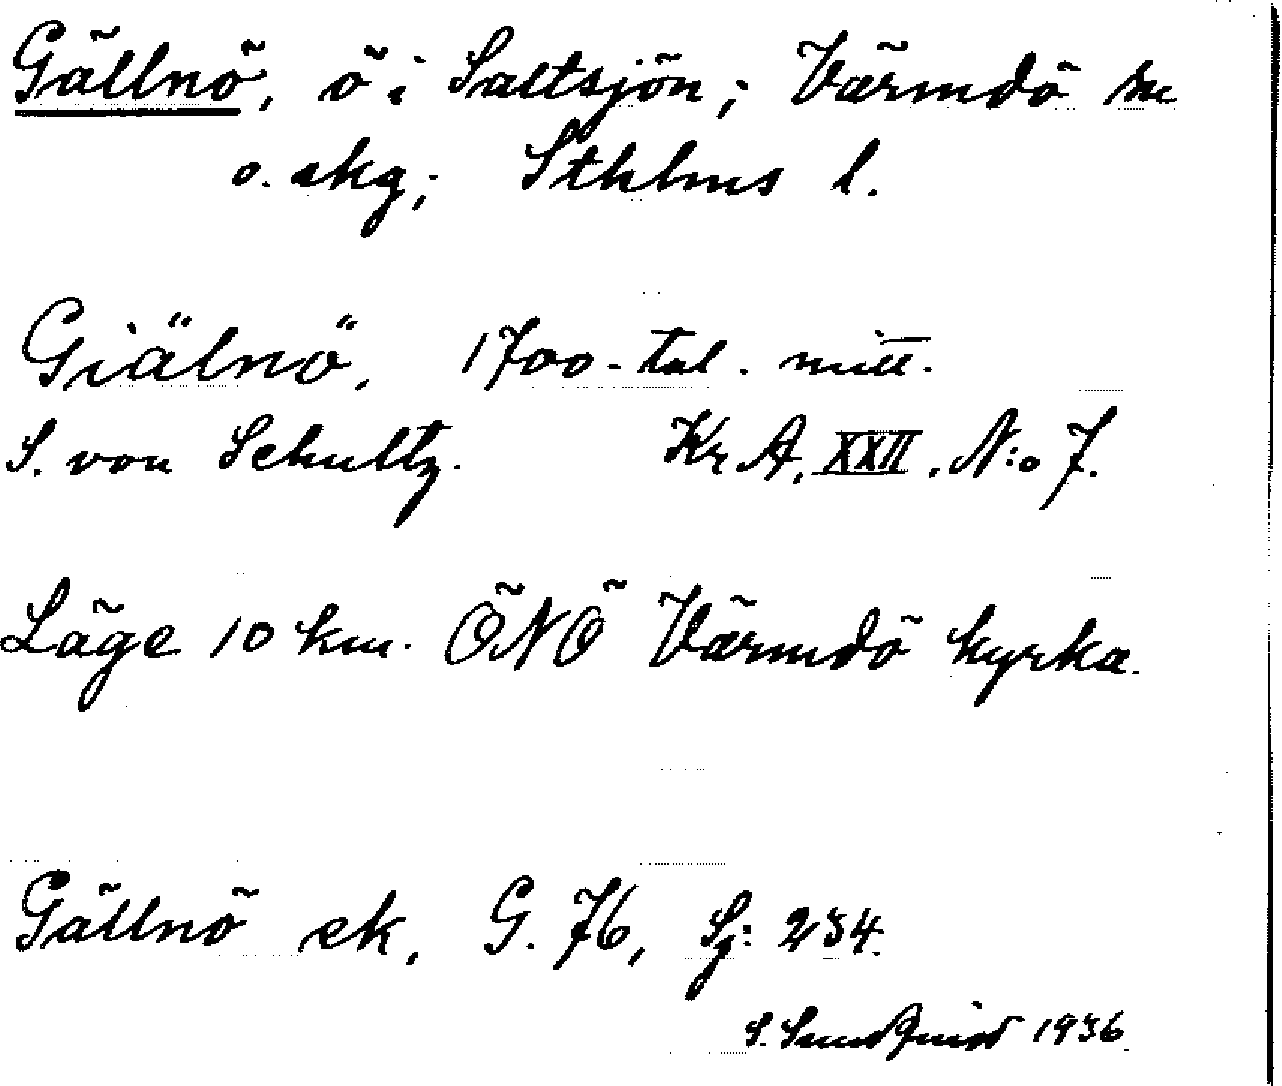 Gällnö, ö i Saltsjön; Värmdö sn
o. skg; Sthlms l.
Giälnö, 1700-tal. mitt.
S. von Schultz. Kr A, XXII, N:o 7.
Läge 10 km. ÖNÖ Värmdö kyrka.
Gällnö ek, G. 76, Sj: 234.
S. 1936